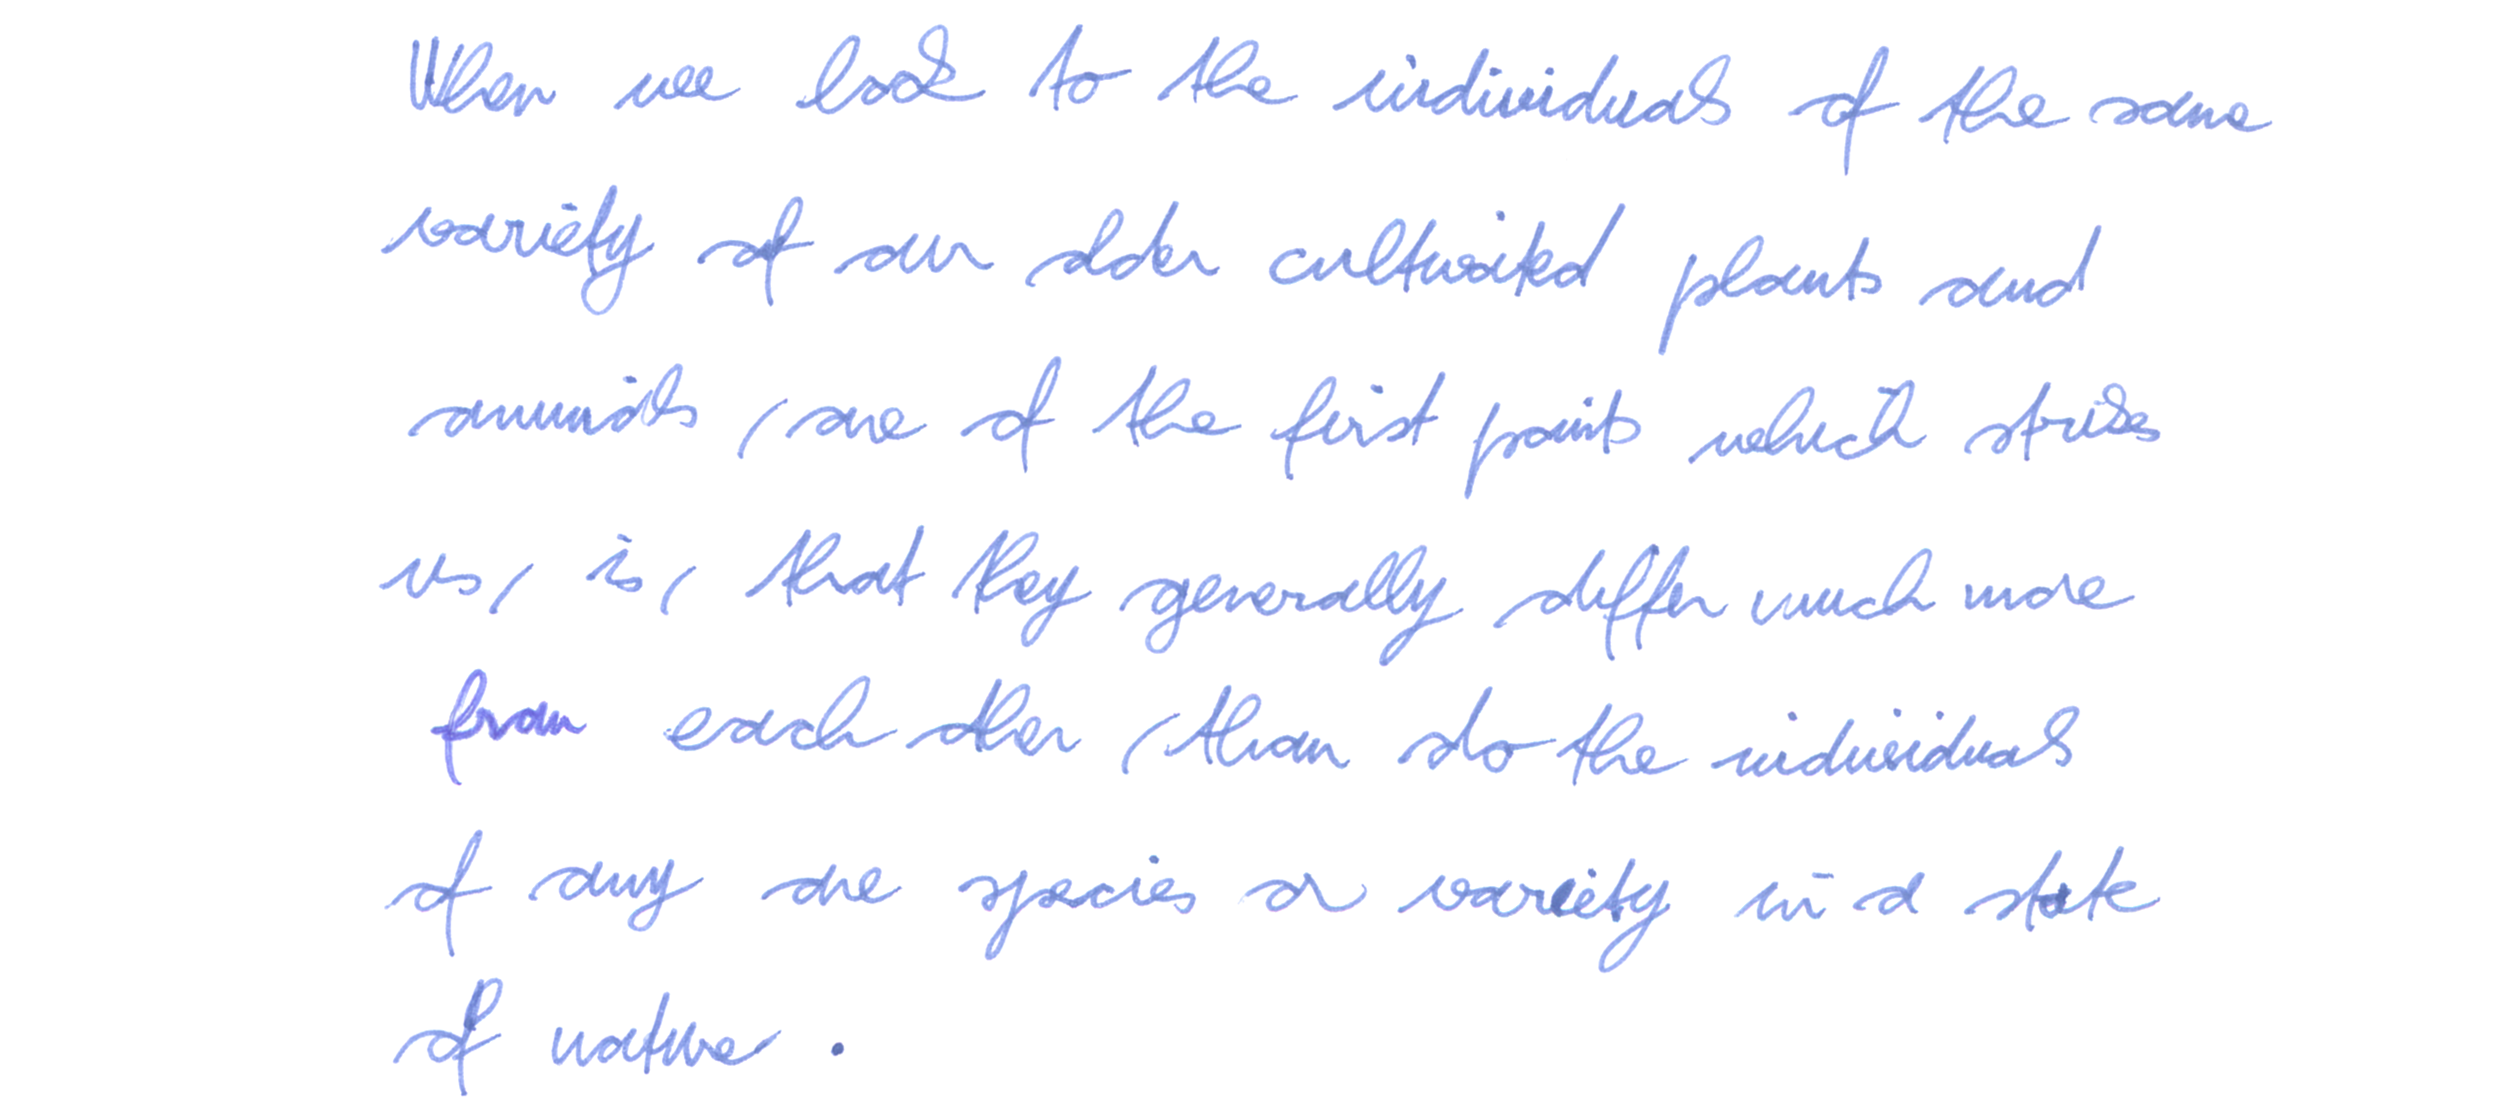 When we look to the individuals of the same
variety of our older cultivated plants and
animals, one of the first points which strikes
us, is, that they generally differ much more
from each other, than do the individuals
of any one species or variety in a state
of nature.